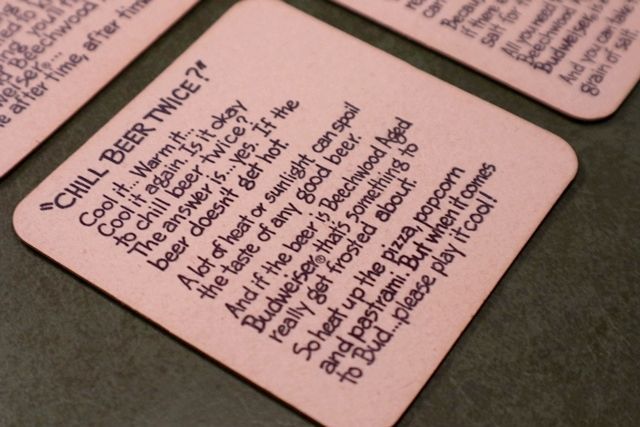 "CHILL BEER TWICE?"
Cool it... Warm it...
Cool it again. Is it okay
to chill beer twice?
The answer is... yes. If the
beer doesn't get hot.
A lot of heat or sunlight can spoil
the taste of any good beer.
And if the beer is Beechwood Aged
Budweiser® that's something to
really get frosted about.
So heat up the pizza, popcorn
and pastrami. But when it comes
to Bud...please play it cool!
Beechwood
after time, after time
Because
if there
salt for
All you need
Beechwood
Budweiser® is
And you can take
grain of salt